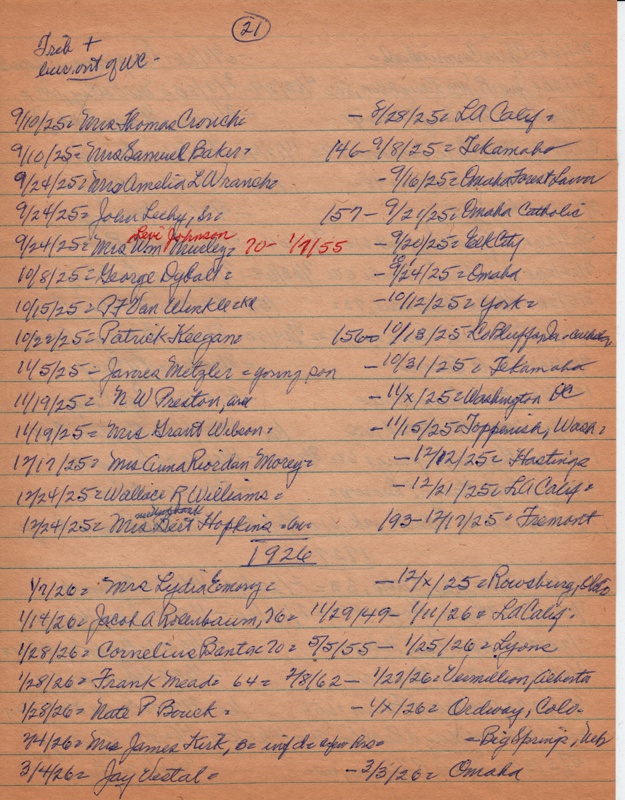 21
Trib +
cur. ont of WC -
9/10/25 = Mrs Thomas Crouch = - 8/28/25 = LA Calif =
9/10/25 = Mrs Samuel Baker = 146 - 9/8/25 = Tekamah
9/24/25 = Mrs Amelia L Wranch = - 9/16/25 = Omaha Forest Lawn
9/24/25 = John Lechy, Sr = 157 - 9/21/25 = Omaha Catholic
Levi Johnson
9/24/25 = Mrs Wm = 70 - 1/7/55 - 9/20/25 = Elk City
10/8/25 = George Dyball = - 9/24/25 = Omaha
10/15/25 = P F Van Winkle - 10/12/25 = York =
10/22/25 = Patrick Keegan = 156 = 10/13/25 Co Bluffs, Ia -
11/5/25 = James Mitzler = young son - 10/31/25 = Tekamah
11/19/25 = N W Preston, - 11/x/25 = Washington DC
11/19/25 = Mrs Grant Wilson = - 11/15/25 = Toppenish, Wash =
12/17/25 = Mrs Anna Riordan Morey = - 12/12/25 = Hastings
12/24/25 = Wallace R Williams = - 12/21/25 = LA Calif =
12/24/25 = Mrs Bert Hopkins = 193 - 12/17/25 = Fremont
1926
1/7/26 = Mrs Lydia Emory = - 12/x/25 = Rowsburg, Ohio
1/14/26 = Jacob A Rosenbaum, 76 = 11/29/49 - 1/11/26 = LA Calif =
1/28/26 = Cornelius Banta = 70 = 5/5/55 - 1/25/26 = Lyons
1/28/26 = Frank Mead = 64 = 2/8/62 - 1/22/26 = Vermillion, Alberta
1/28/26 = Nate P Bouck = - 1/x/26 = Ordway, Colo =
2/4/26 = Mrs James Kirk, = Big Springs, Neb
3/4/26 = Jay Vestal = - 3/3/26 = Omaha